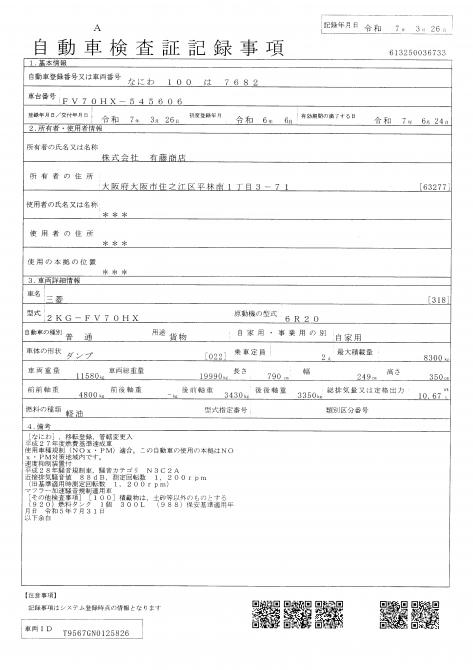 記録年月日 令和 7年 3月 26日
A
自動車検査証記録事項
613250036733
1.基本情報
自動車登録番号又は車両番号 なにわ 100 は 7682
車台番号 FV70HX-545606
登録年月日/交付年月日 令和 7年 3月 26日 初度登録年月 令和 6年 6月 有効期間の満了する日 令和 7年 6月 24日
2.所有者・使用者情報
所有者の氏名又は名称 株式会社 有藤商店
所有者の住所 大阪府大阪市住之江区平林南1丁目3-71 [63277]
使用者の氏名又は名称 ***
使用者の住所 ***
使用の本拠の位置 ***
3.車両詳細情報
車名 三菱 [318]
型式 2KG-FV70HX 原動機の型式 6R20
自動車の種別 普通 用途 貨物 自家用・事業用の別 自家用
車体の形状 ダンプ [022] 乗車定員 2人 最大積載量 8300kg
車両重量 11580kg 車両総重量 19990kg 長さ 790cm 幅 249cm 高さ 350cm
前前軸重 4800kg 前後軸重 -kg 後前軸重 3430kg 後後軸重 3350kg 総排気量又は定格出力 10.67L
燃料の種類 軽油 型式指定番号 類別区分番号
4.備考
[なにわ],移転登録,管轄変更入
平成27年度燃費基準達成車
使用車種規制(NOx・PM)適合,この自動車の使用の本拠はNO
x・PM対策地域内です。
速度抑制装置付
平成28年騒音規制車,騒音カテゴリ N3C2A
近接排気騒音値 88dB,測定回転数 1,200rpm
(旧基準適用時測定回転数 1,200rpm)
マフラー加速騒音規制適用車
[その他検査事項][100]積載物は,土砂等以外のものとする
(920)燃料タンク 1個 300L (988)保安基準適用年
月日 令和5年7月31日
以下余白
【注意事項】
記録事項はシステム登録時点の情報となります
車両ID T9567GN0125826